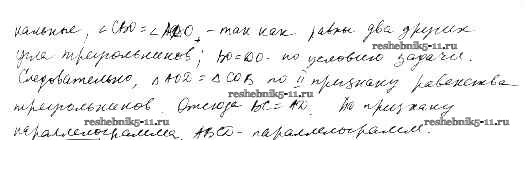 кальные, ∠CBO = ∠ADO, - так как равны два других
угла треугольников; BO=DO - по условию задачи.
reshebnik5-11.ru
Следовательно, △AOD = △COB по II признаку равенства
треугольников. Отсюда BC = AD. По признаку
reshebnik5-11.ru
reshebnik5-11.ru
параллелограмма ABCD - параллелограмм.